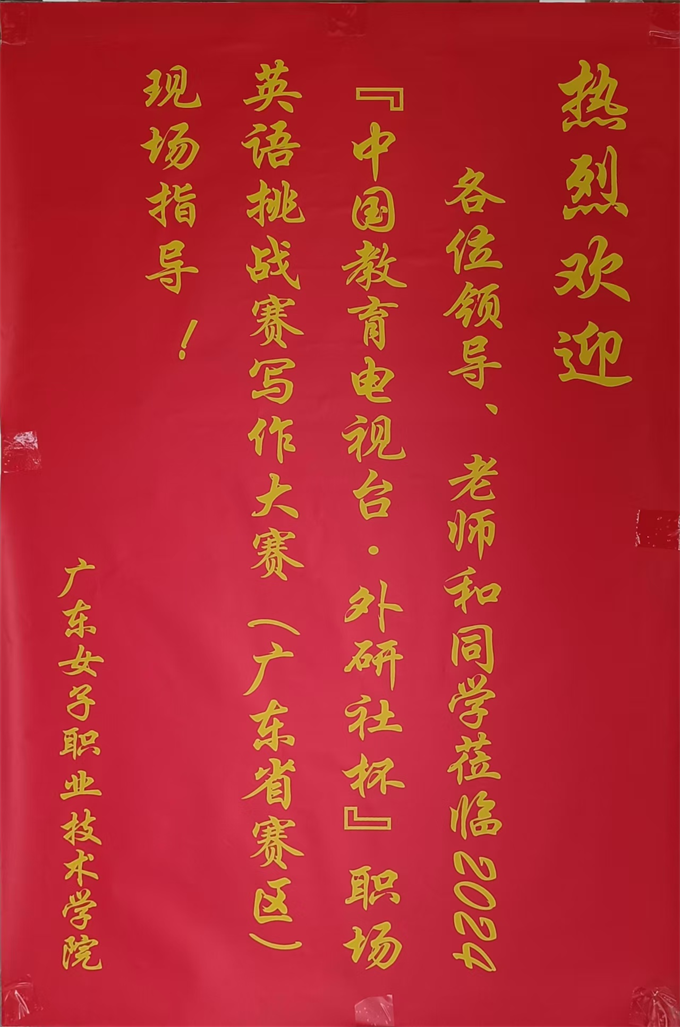 热烈欢迎
各位领导、老师和同学莅临2024
『中国教育电视台·外研社杯』职场
英语挑战赛写作大赛（广东省赛区）
现场指导！
广东女子职业技术学院